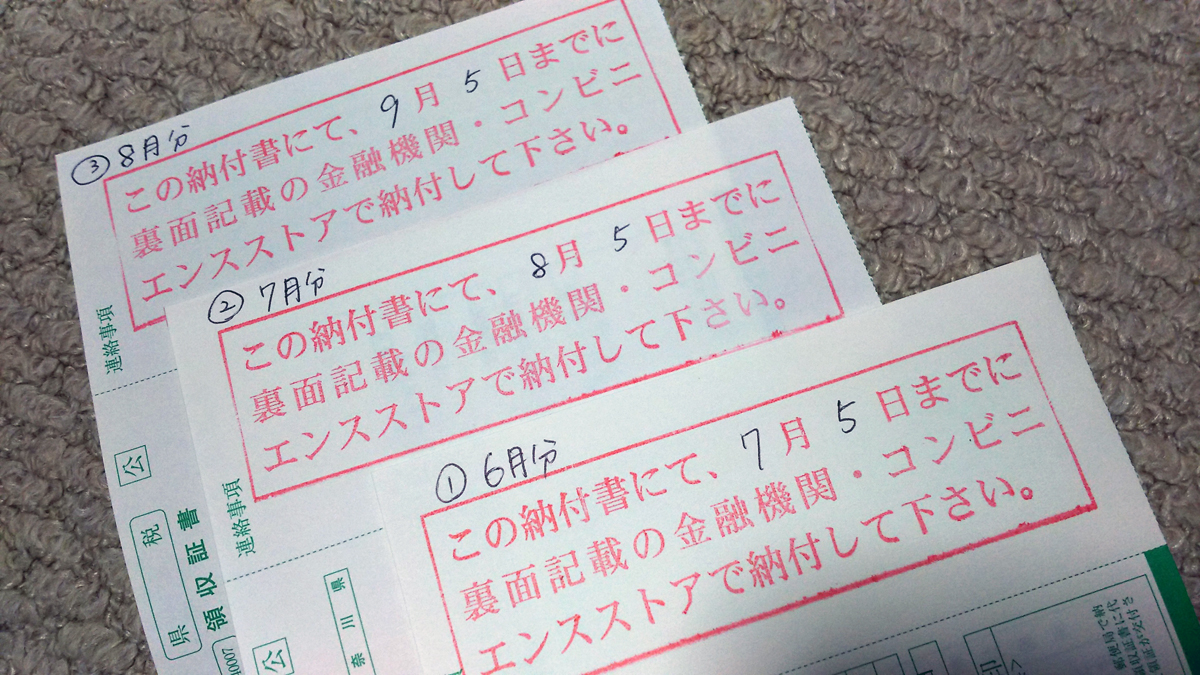 ③ 8月分
この納付書にて、9月5日までに
裏面記載の金融機関・コンビニ
エンスストアで納付して下さい。
連絡事項
公
県税
領収証書
0007
② 7月分
この納付書にて、8月5日までに
裏面記載の金融機関・コンビニ
エンスストアで納付して下さい。
連絡事項
公
奈川県
① 6月分
この納付書にて、7月5日までに
裏面記載の金融機関・コンビニ
エンスストアで納付して下さい。